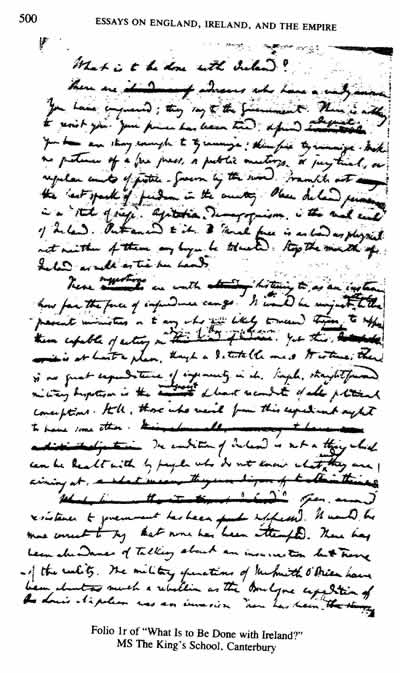 500
ESSAYS ON ENGLAND, IRELAND, AND THE EMPIRE
What is to be done with Ireland?
There are advisers who have a ready answer
You have conquered; they say to the Government. There is nothing
to resist you. Your power has been tried, & found
You are strong enough to tyrannize; therefore tyrannize. Make
no pretence of a free press, or public meetings, or jury trial, or
regular courts of justice. Govern by the sword. Trample out
the last spark of freedom in the country. Place Ireland
in a state of siege. Agitation, Demagoguism, is the real evil
of Ireland. Moral force is as bad as physical
neither of them any longer be tolerated. Stop the mouth of
Ireland as well as tie her hands.
These suggestions are worth listening to, as an instance
how far the force of impudence can go. It would be unjust to the
present ministers or to any who are likely to succeed to
them capable of acting on Yet this
is at least a plan, though a detestable one. It is true, there
is no great expenditure of ingenuity in it. Simple, straightforward
military despotism is the & least recondite of all political
conceptions. Still, those who recoil from this expedient ought
to have some other.
The condition of Ireland is not a thing which
can be dealt with by people who do not know what they are
aiming at.
Open, armed
resistance to government has been suppressed. It would be
more correct to say that none has been attempted. There has
been abundance of talking about an insurrection but none
of the reality. The military operations of Mr Smith O'Brien have
been about as much a rebellion as the Boulogne expedition of
Louis Napoleon was an invasion. There has been
Folio 1r of "What Is to Be Done with Ireland?"
MS The King's School, Canterbury